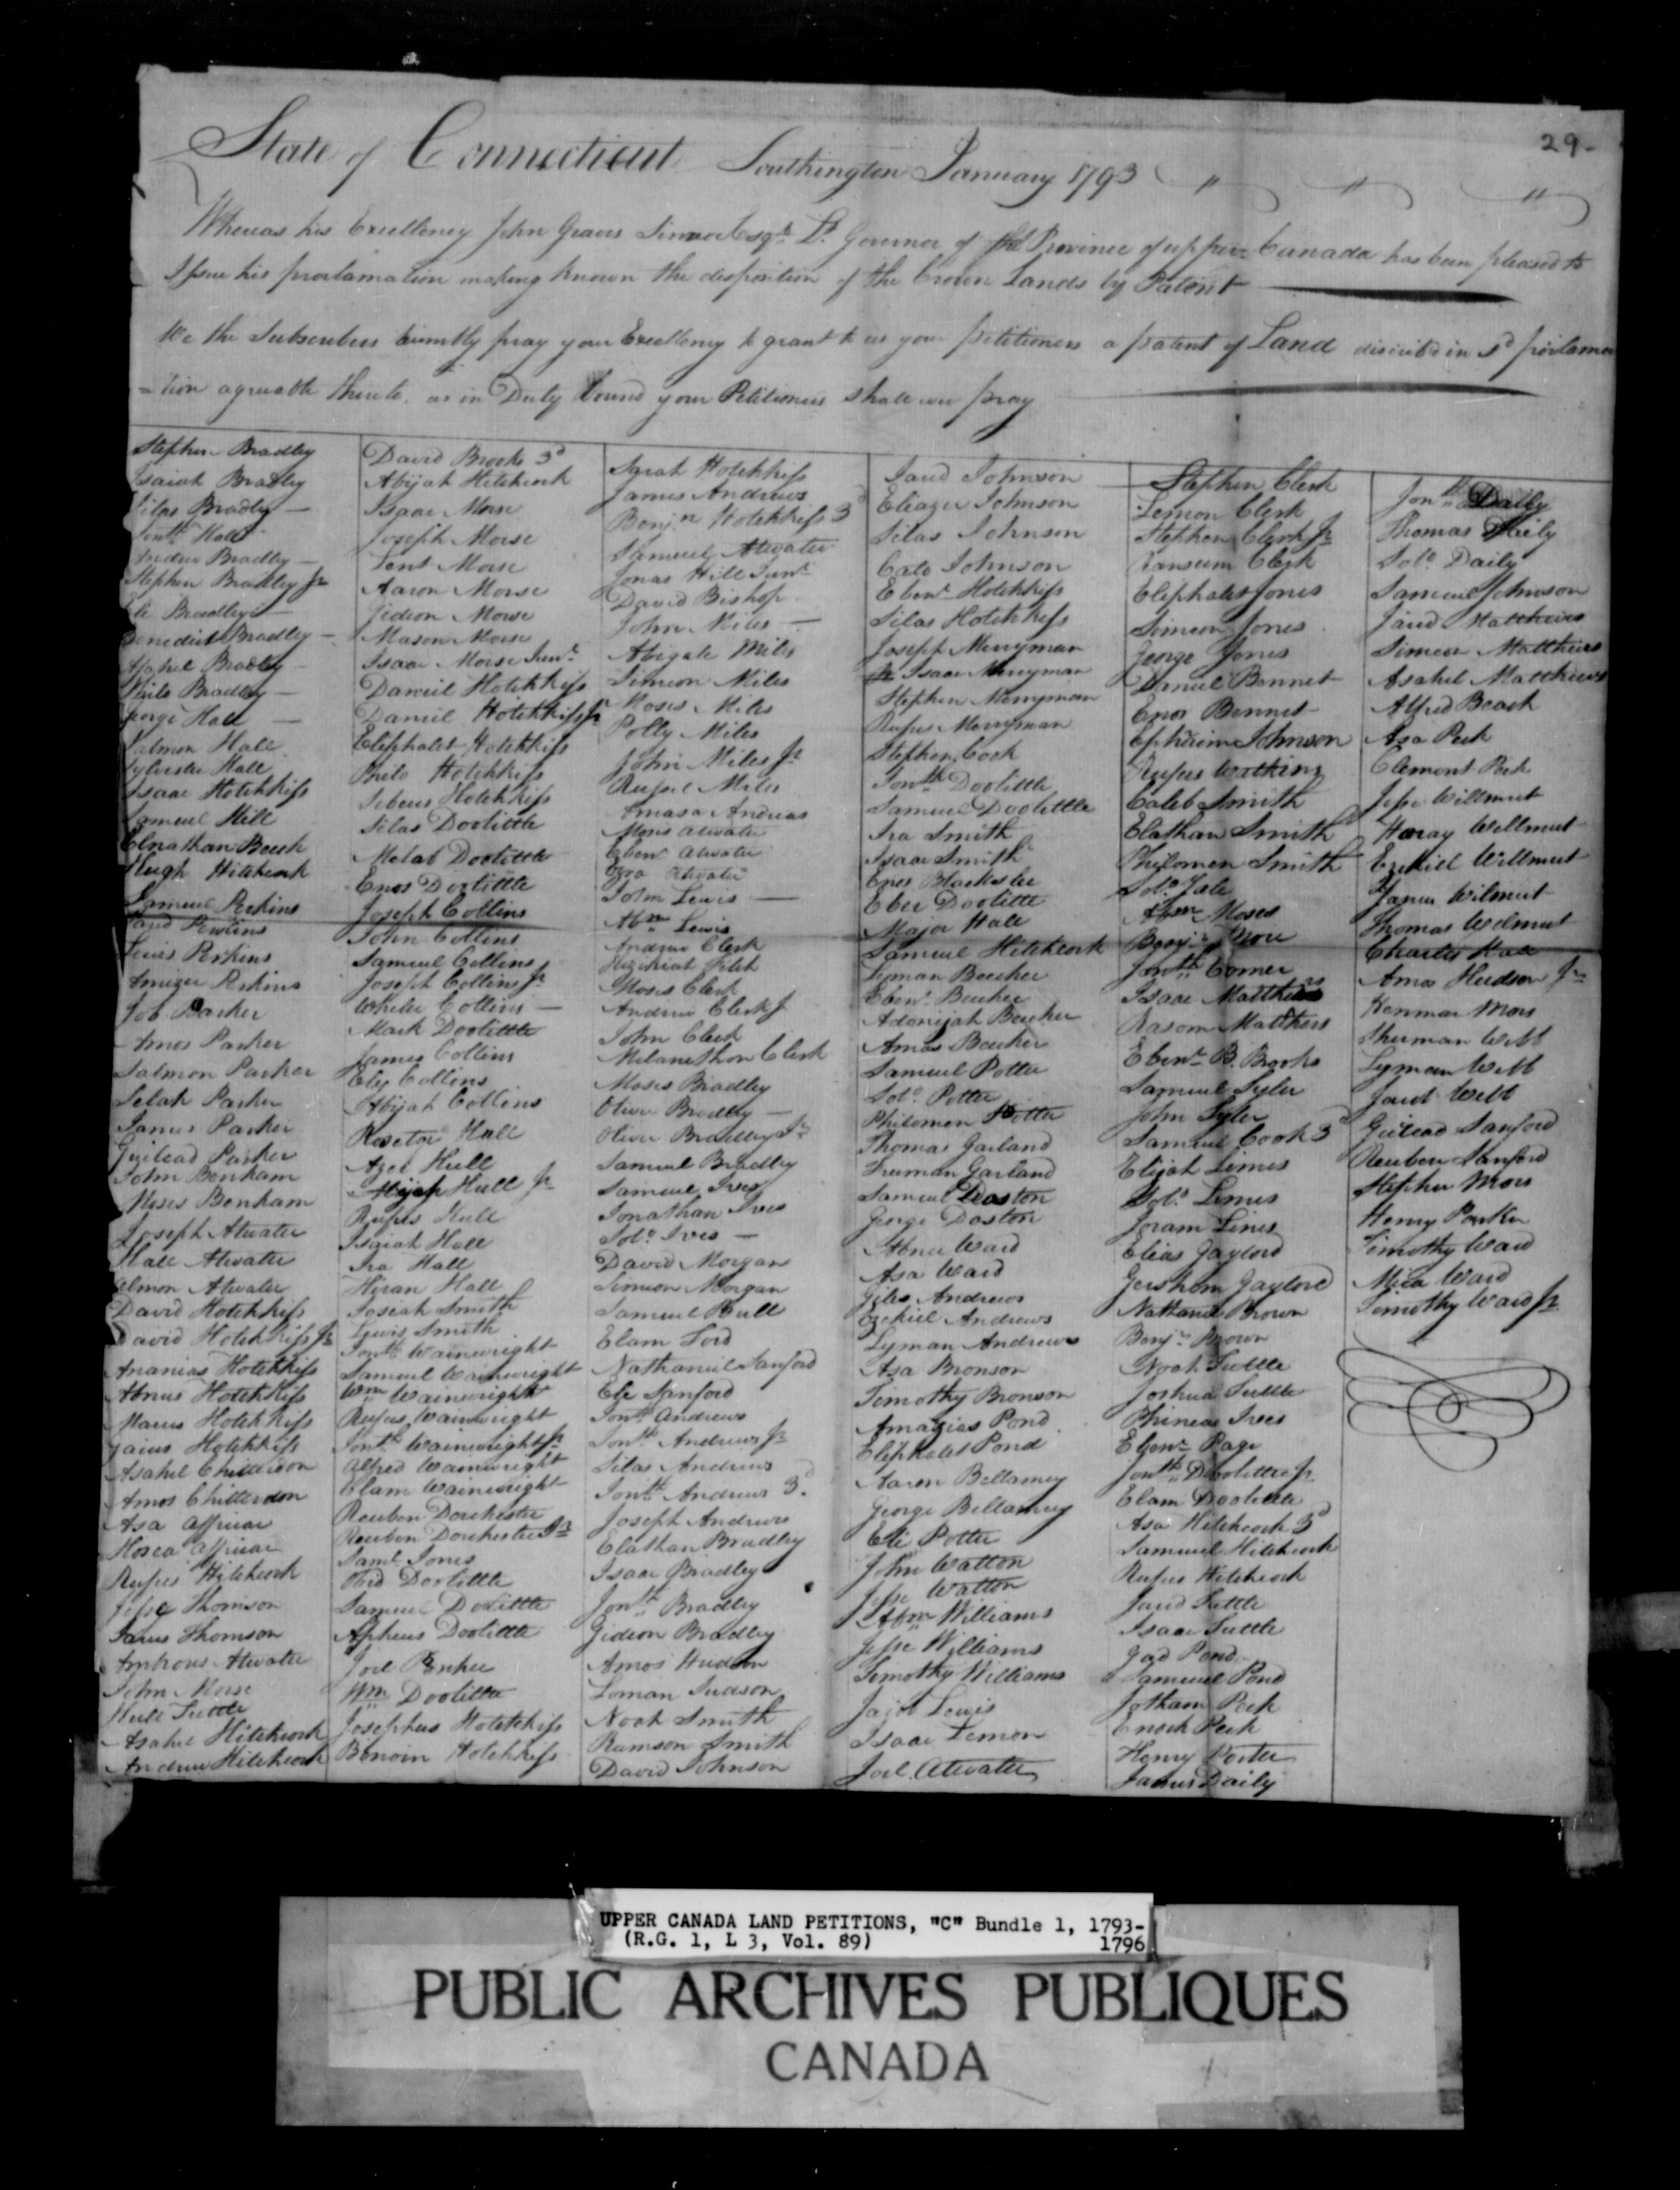 29-
State of Connecticut Southington January 1793
Whereas his Excellency John Graves Simcoe Esqr. Lt. Governor of the Province of upper Canada has been pleased to
Issue his proclamation making known the disposition of the Crown Lands by Patent
We the Subscribers humbly pray your Excellency to grant to us your petitioners a patent of Land discribd in sd proclama
=tion agreable thereto. as in Duty bound your Petitioners shall ever pray
Stephen Bradley
Isaiah Bradley
Silas Bradley
Jonth. Hall
Andrew Bradley
Stephen Bradley Jr
Eli Bradley
Benedict Bradley
Asahel Bradley
Philo Bradley
George Hall
Salmon Hall
Sylvester Hall
Isaac Hotchkiss
Samuel Hill
Elnathan Beech
Hugh Hitchcock
Samuel Perkins
Jared Perkins
Lewis Perkins
Amizer Perkins
Job Parker
Amos Parker
Salmon Parker
Selah Parker
James Parker
Guilead Parker
John Benham
Moses Benham
Joseph Atwater
Hall Atwater
Almon Atwater
David Hotchkiss
David Hotchkiss Jr
Ananias Hotchkiss
Abner Hotchkiss
Marus Hotchkiss
Gaius Hotchkiss
Asahel Chittendon
Amos Chittendon
Asa
Hosea
Rufus Hitchcock
Jesse Thomson
James Thomson
Ambrous Atwater
John Morse
Hull Tuttle
Asahel Hitchcock
Andrew Hitchcock
David Brooks 3d
Abijah Hitchcock
Isaac Morse
Joseph Morse
Lent Morse
Aaron Morse
Gideon Morse
Mason Morse
Isaac Morse Junr.
Daniel Hotchkiss
Daniel Hotchkiss Jr
Eliphalet Hotchkiss
Philo Hotchkiss
Sebeus Hotchkiss
Silas Doolittle
Metab Doolittle
Enos Doolittle
Joseph Collins
John Collins
Samuel Collins
Joseph Collins Jr
Wheler Collins
Mark Doolittle
James Collins
Ely Collins
Abijah Collins
Rosetor Hall
Azel Hull
Abijah Hull Jr
Rufus Hull
Isaiah Hall
Ira Hall
Hiran Hall
Josiah Smith
Lewis Smith
Jonth. Wainwright
Samuel Wainwright
Wm Wainwright
Rufus Wainwright
Jonth. Wainwright Jr
Alfred Wainwright
Elam Wainwright
Reuben Dorchester
Reuben Dorchester Jr
Saml. Jones
Obid Doolittle
Samuel Doolittle
Alpheus Doolittle
Joel Parker
Wm. Doolittle
Josephus Hotchkiss
Benoin Hotchkiss
Sarah Hotchkiss
James Andrews
Benjn. Hotchkiss 3d
Samuel Atwater
Jonas Hill Junr.
David Bishop
John Miles
Abigale Miles
Simeon Miles
Moses Miles
Polly Miles
John Miles Jr
Rufus Miles
Amasa Andreas
Moris Atwater
Ebenr Atwater
Ezra Atwater
John Lewis
Abm. Lewis
Andrew Clerk
Hezekiah Fitch
Moses Clerk
Andrew Clerk Jr
John Clerk
Milancthon Clerk
Moses Bradley
Oliver Bradley
Oliver Bradley Jr
Samuel Bradley
Samuel Ives
Jonathan Ives
Solo. Ives
David Morgan
Simeon Morgan
Samuel Hull
Elam Ford
Nathaniel Sanford
Ele Sanford
Jonth Andrews
Jonth. Andrews Jr
Silas Andrews
Jonth. Andrews 3d.
Joseph Andrews
Elathan Bradley
Isaac Bradley
Jonth. Bradley
Gideon Bradley
Amos Hudson
Loman Judson
Noah Smith
Ramson Smith
David Johnson
Jared Johnson
Eliazer Johnson
Silas Johnson
Cato Johnson
Ebenr. Hotchkiss
Silas Hotchkiss
Joseph Merryman
Isaac Merryman
Stephen Merryman
Rufus Merryman
Stephen Cook
Jonth. Doolittle
Samuel Doolittle
Ira Smith
Isaac Smith
Enos Blackslee
Eber Doolittle
Major Hall
Samuel Hitchcock
Lyman Beecher
Ebenr. Beecher
Adonijah Beecher
Amos Beecher
Samuel Potter
Solo. Potter
Philomen Potter
Thomas Garland
Truman Garland
Samuel Daston
George Daston
Abner Ward
Asa Ward
Giles Andrews
Ezekiel Andrews
Lyman Andrews
Asa Bronson
Timothy Bronson
Amazias Pond
Eliphalet Pond
Aaron Bellamey
George Bellamey
Eli Potter
John Watton
Jesse Watton
Abm. Williams
Jesse Williams
Timothy Williams
Jacob Lewis
Isaac Lemon
Joel Atwater
Stephen Clerk
Lemon Clerk
Stephen Clerk Jr
Ransum Clerk
Eliphalet Jones
Simeon Jones
George Jones
Daniel Bennet
Enos Bennet
Ephraim Johnson
Rufus Watkins
Caleb Smith
Elathan Smith
Philomen Smith
Solo. Yale
Abm. Moses
Benjn. More
Jonth. Corner
Isaac Matthews
Rasom Matthews
Ebenr. B. Brooks
Samuel Tyler
John Tyler
Samuel Cook 3d
Elijah Limes
Solo. Limes
Joram Lines
Elias Gaylord
Gershom Gaylord
Nathaniel Brown
Benjn. Brown
Noah Tuttle
Joshua Tuttle
Phineas Ives
Ebenr. Page
Jonth. Doolittle Jr
Elam Doolittle
Asa Hitchcock 3d
Samuel Hitchcock
Rufus Hitchcock
Jared Tuttle
Isaac Tuttle
Gad Pond
Samuel Pond
Jotham Peck
Enoch Peck
Henry Porter
James Daily
Jonth. Daily
Thomas Daily
Solo. Daily
Samuel Johnson
Jared Matthews
Simeon Matthews
Asahel Matthews
Alfred Beach
Asa Peck
Clemont Peck
Jesse Willmut
Haray Wellmut
Ezekiel Willmut
James Wilmut
Thomas Welmut
Charles Hall
Amos Hudson Jr
Henman Mors
Sherman Webb
Lyman Webb
Jared Webb
Guilead Sanford
Reuben Sanford
Stephen Mors
Henry Parker
Timothy Ward
Mica Ward
Timothy Ward Jr
UPPER CANADA LAND PETITIONS, "C" Bundle 1, 1793-
(R.G. 1, L 3, Vol. 89) 1796
PUBLIC ARCHIVES PUBLIQUES
CANADA